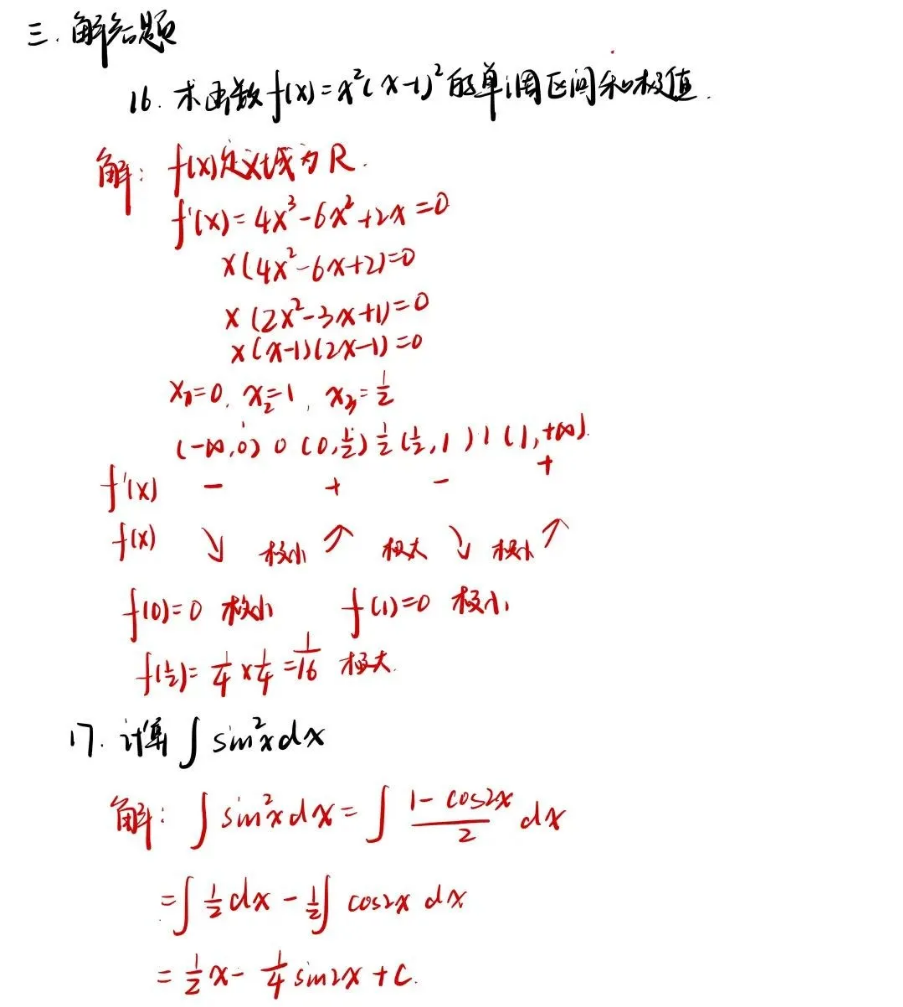 三.解答题
16.求函数f(x)=x²(x-1)²的单调区间和极值.
解: f(x)定义域为R.
f'(x)=4x³-6x²+2x=0
x(4x²-6x+2)=0
x(2x²-3x+1)=0
x(x-1)(2x-1)=0
x₁=0, x₂=1, x₃=1/2
(-∞,0) 0 (0,1/2) 1/2 (1/2,1) 1 (1,+∞).
f'(x) - + - +
f(x) ↘ 极小 ↗ 极大 ↘ 极小 ↗
f(0)=0 极小 f(1)=0 极小
f(1/2)=1/4×1/4=1/16 极大.
17.计算∫sin²xdx
解: ∫sin²xdx=∫(1-cos2x)/2 dx
=∫1/2dx-1/2∫cos2x dx
=1/2x-1/4sin2x+C.